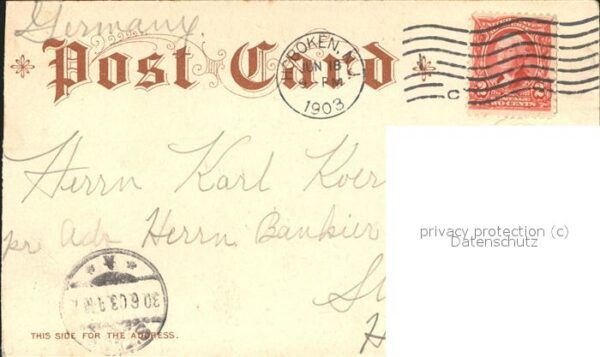 Germany.
Post Card
HOBOKEN, N.J.
1903
TWO CENTS
Herrn Karl
pr Adr Herrn Bankier
privacy protection (c)
Datenschutz
30.6.03.
THIS SIDE FOR THE ADDRESS.